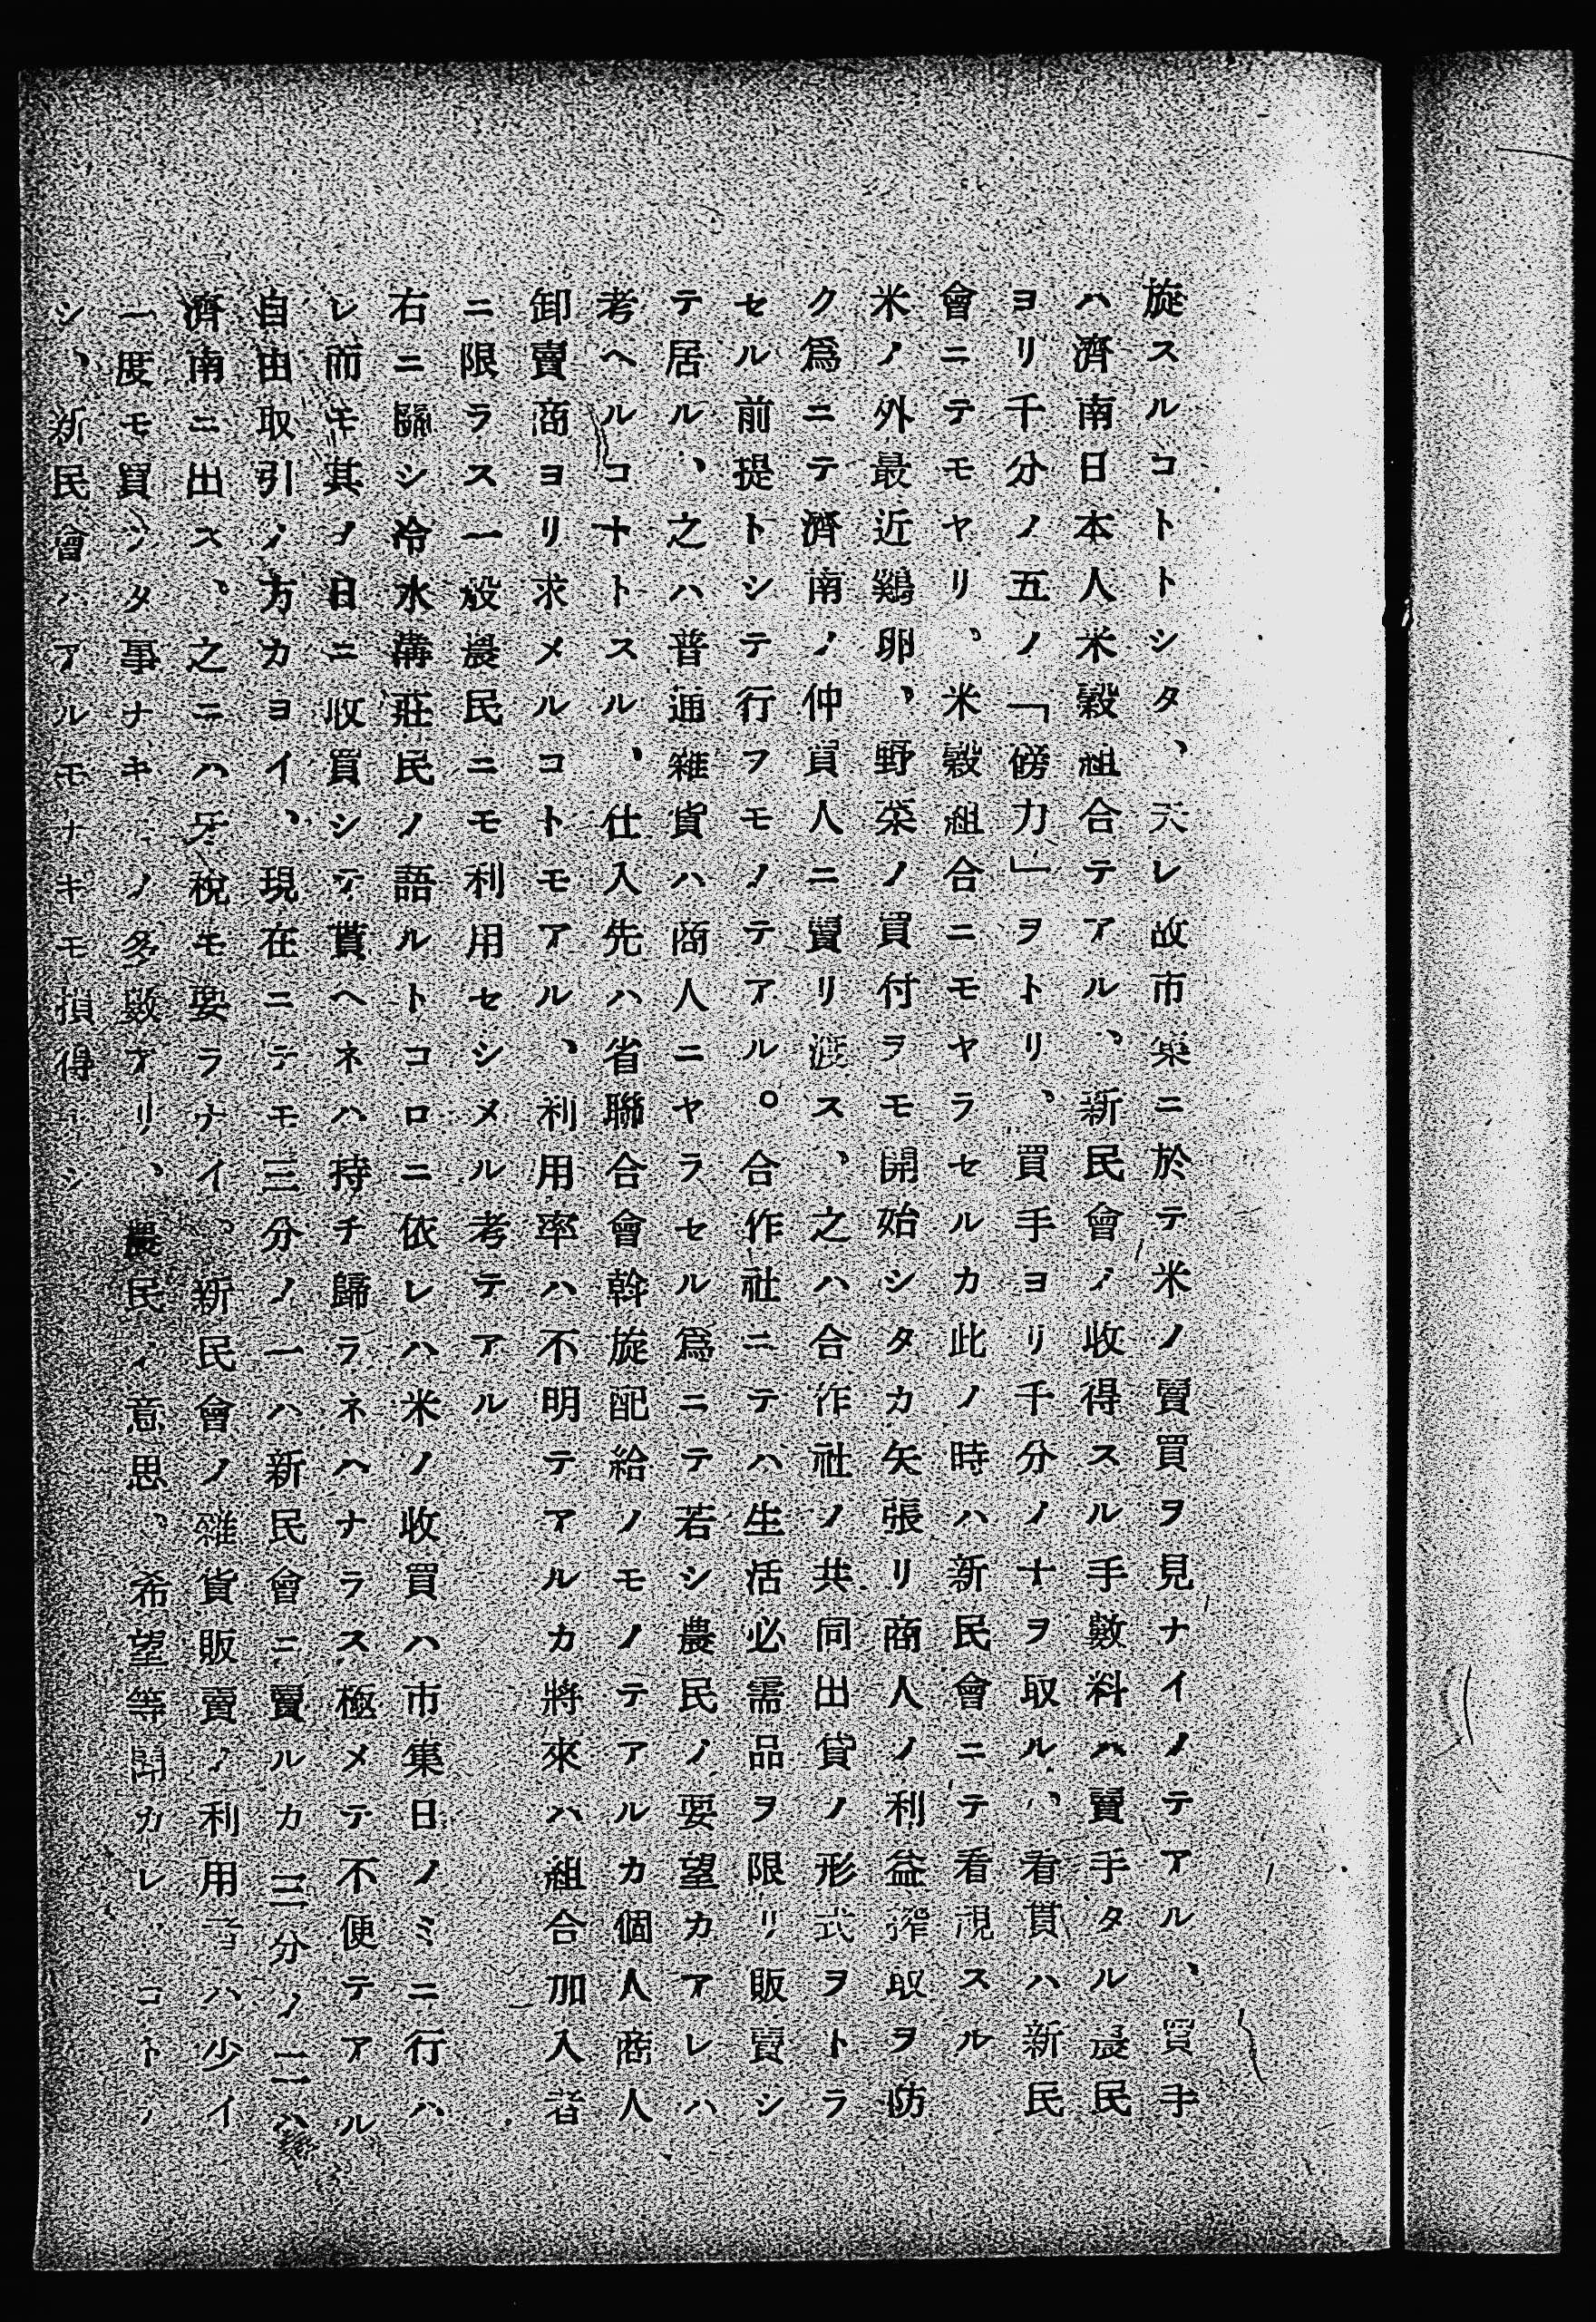 旋スルコトトシタ、夫レ故市集ニ於テ米ノ賣買ヲ見ナイノテアル、買手
ハ濟南日本人米穀組合テアル、新民會ノ收得スル手數料ハ賣手タル農民
ヨリ千分ノ五ノ「傍力」ヲトリ、買手ヨリ千分ノ十ヲ取ル、看貫ハ新民
會ニテモヤリ。米穀組合ニモヤラセルカ此ノ時ハ新民會ニテ看視スル
米ノ外最近鷄卵、野菜ノ買付ヲモ開始シタカ矢張リ商人ノ利益搾取ヲ防
ク爲ニテ濟南ノ仲買人ニ賣リ渡ス、之ハ合作社ノ共同出貨ノ形式ヲトラ
セル前提トシテ行フモノテアル。合作社ニテハ生活必需品ヲ限リ販賣シ
テ居ル、之ハ普通雜貨ハ商人ニヤラセル爲ニテ若シ農民ノ要望カアレハ
考ヘルコトトスル、仕入先ハ省聯合會斡旋配給ノモノテアルカ個人商人
卸賣商ヨリ求メルコトモアル、利用率ハ不明テアルカ將來ハ組合加入者
ニ限ラス一般農民ニモ利用セシメル考テアル
右ニ關シ冷水溝莊民ノ語ルトコロニ依レハ米ノ收買ハ市集日ノミニ行ハ
レ而モ其ノ日ニ收買シテ貰ヘネハ持チ歸ラネハナラス極メテ不便テアル
自由取引ノ方カヨイ、現在ニテモ三分ノ一ハ新民會ニ賣ルカ三分ノ二ハ
濟南ニ出ス。之ニハ牙稅モ要ラナイ。新民會ノ雜貨販賣ノ利用者ハ少イ
一度モ買シタ事ナキモノ多數アリ、農民ノ意思、希望等聞カレルコトナ
シ、新民會ハアルモナキモ損得ナシ